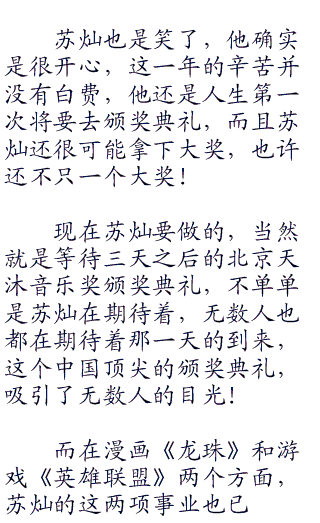 苏灿也是笑了，他确实
是很开心，这一年的辛苦并
没有白费，他还是人生第一
次将要去颁奖典礼，而且苏
灿还很可能拿下大奖，也许
还不只一个大奖！
现在苏灿要做的，当然
就是等待三天之后的北京天
沐音乐奖颁奖典礼，不单单
是苏灿在期待着，无数人也
都在期待着那一天的到来，
这个中国顶尖的颁奖典礼，
吸引了无数人的目光！
而在漫画《龙珠》和游
戏《英雄联盟》两个方面，
苏灿的这两项事业也已